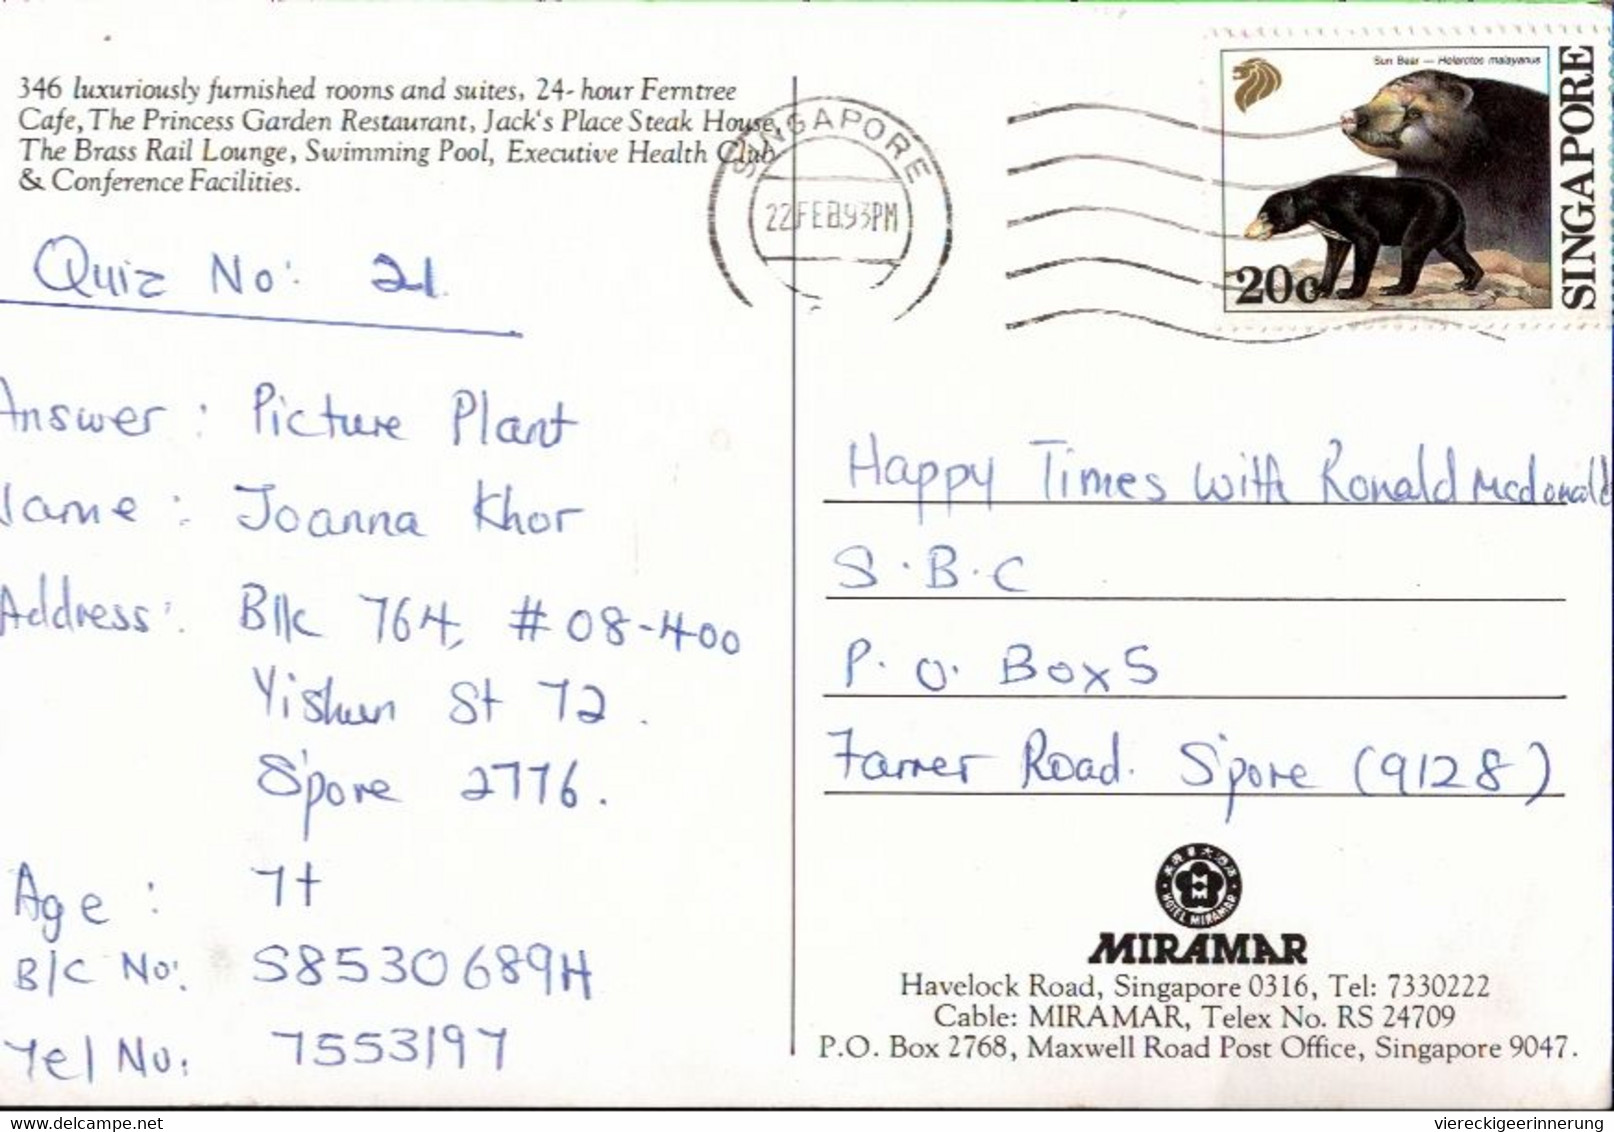 346 luxuriously furnished rooms and suites, 24-hour Ferntree
Cafe, The Princess Garden Restaurant, Jack's Place Steak House,
The Brass Rail Lounge, Swimming Pool, Executive Health Club
& Conference Facilities.
SINGAPORE
22FEB93PM
Sun Bear — Helarctos malayanus
20c
SINGAPORE
Quiz No: 21.
Answer: Picture Plant
Name: Joanna Khor
Address: Blk 764, #08-400
Yishun St 72.
S'pore 2776.
Age: 7+
B/C No: S8530689H
Tel No: 7553197
Happy Times with Ronald Mcdonald
S.B.C
P.O. Box 5
Farrer Road. S'pore (9128)
HOTEL MIRAMAR
MIRAMAR
Havelock Road, Singapore 0316, Tel: 7330222
Cable: MIRAMAR, Telex No. RS 24709
P.O. Box 2768, Maxwell Road Post Office, Singapore 9047.
delcampe.net
viereckigeerinnerung